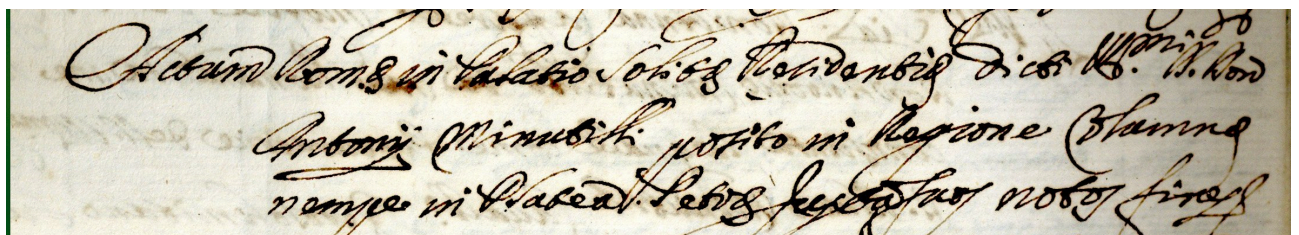 Actum Romę in Palatio Solitę Residentię dicti Ill.mi D. Don
Antonij Minutilli posito in Regione Columnę
nempe in Platea Petrę Juxta suos notos fines